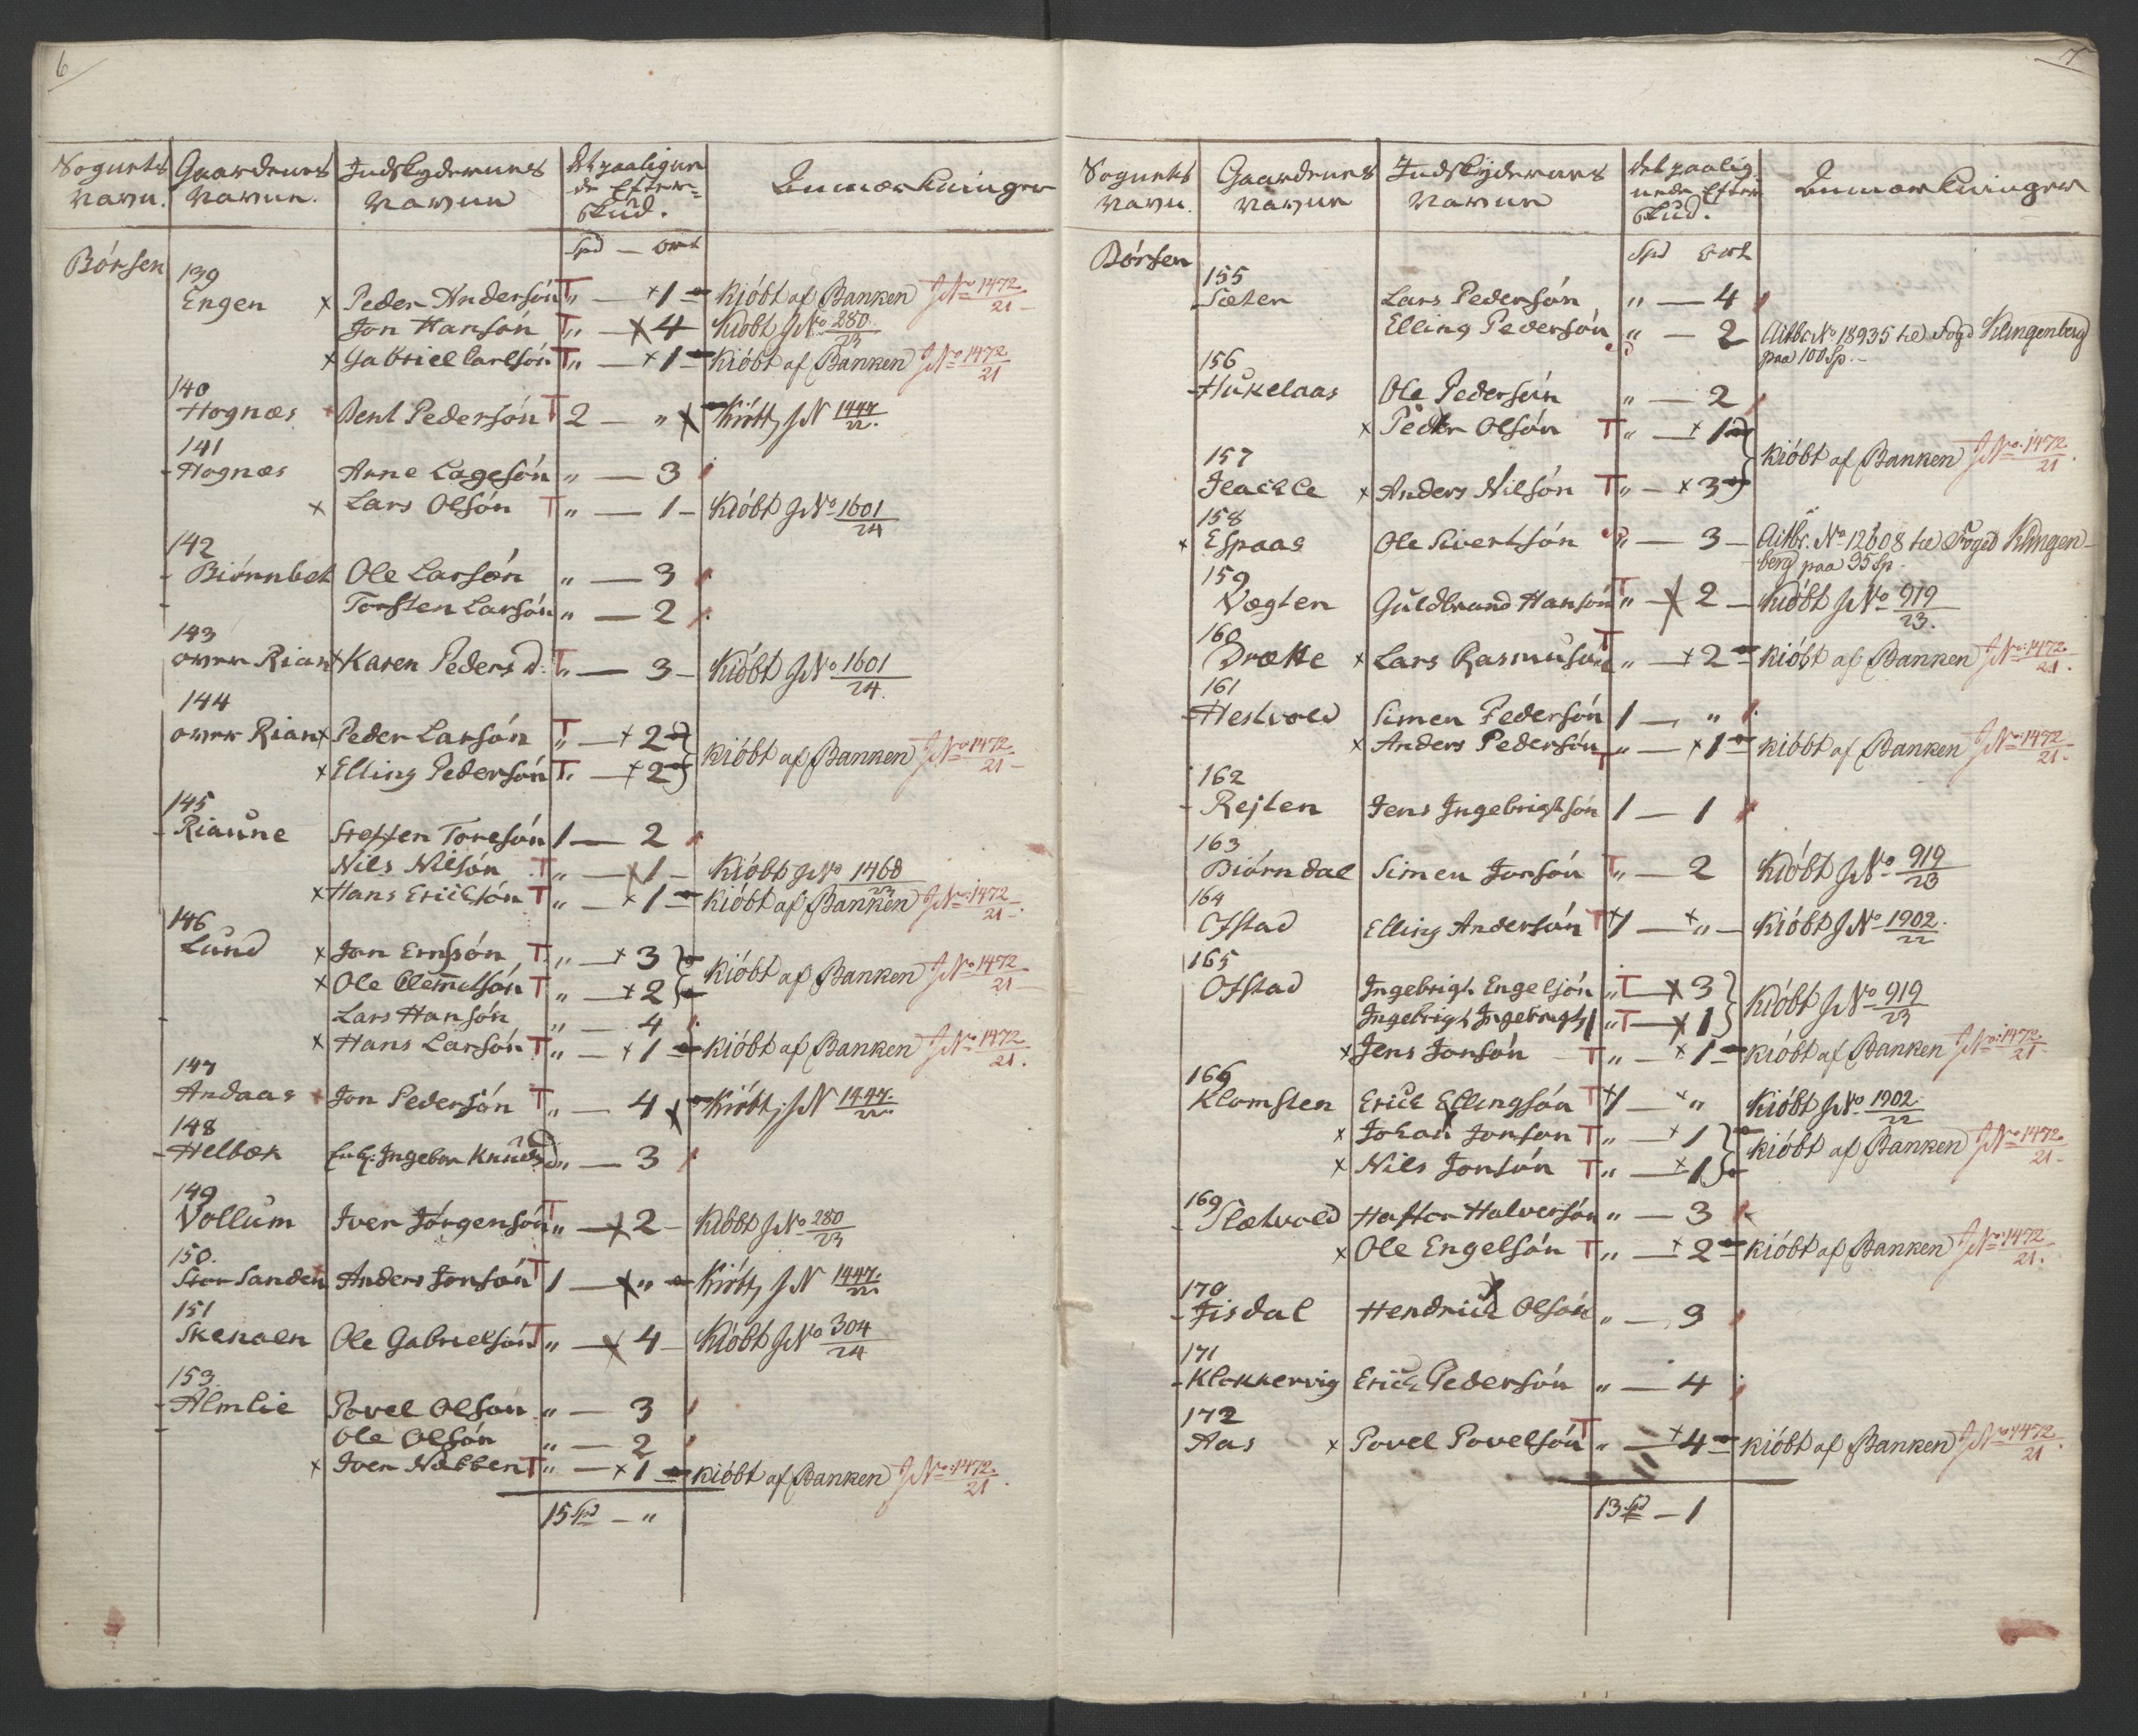 6
Sognets Navn. Gaardenes Navne. Indskydernes Navne Det paalignede Efterskud. Anmærkninger
Spd — ort
Børsen
139
Engen x Peder Andersøn T „ — x 1 — Kiøbt af Banken JNo 1472/21
Jon Hansøn T „ — x 4 — Kiøbt JNo 280/23
x Gabriel Carlsøn T „ — x 1 — Kiøbt af Banken JNo 1472/21
140
Hognæs Bent Pedersøn T 2 — „ x Kiøbt JN 1447/22.
141
Hognæs Arne Lagesøn „ — 3
x Lars Olsøn T „ — 1 — Kiøbt JNo 1601/24
142
Biørnbet Ole Larsøn „ — 3
Torsten Larsøn „ — 2
143
over Rian x Karen Peders d. T „ — 3 — Kiøbt JNo 1601/24.
144
over Rian x Peder Larsøn T „ — x 2
x Elling Pedersøn T „ — x 2 } Kiøbt af Banken JNo 1472/21
145
Riaune Steffen Toresøn 1 — 2
Nils Nilsøn T „ — x 1 — Kiøbt JNo 1460/23
x Hans Erichsøn T „ — x 1 — Kiøbt af Banken JNo 1472/21
146
Lund x Jon Ernsøn T „ — x 3
x Ole Clemmetsøn T „ — x 2 } Kiøbt af Banken JNo 1472/21
Lars Hansøn „ — 4
x Hans Larsøn T „ — x 1 — Kiøbt af Banken JNo 1472/21.
147
Andaas Jon Pedersøn T „ — 4 x Kiøbt JN 1447/22.
148
Helbæk Enk. Ingebor Knudsd „ — 3
149
Vollum Iver Jørgensøn T „ — x 2 — Kiøbt JNo 280/23
150.
Stor Sanden Anders Jonsøn T 1 — x „ Kiøbt JN 1447/22
151
Skenaln Ole Gabrielsøn T „ — x 4 — Kiøbt JNo 304/24
153.
Almlie Povel Olsøn „ — 3
Ole Olsøn „ — 2
x Iver Nabben T „ — x 1 — Kiøbt af Banken JNo 1472/21.
15 Spd — „
7
Sognets Navn. Gaardenes Navne Indskydernes Navne Det paalignede Efterskud. Anmærkninger
Spd ort
Børsen
155
Sæter Lars Pedersøn „ — 4
Elling Pedersøn „ — 2 Aitbr. No 18935 til Fogd Klingenberg
paa 100 Sp. —
156
Hukelaas Ole Pedersøn „ — 2
x Peder Olsøn T „ — x 1
157 } Kiøbt af Banken JNo 1472/21.
x Anders Nilsøn T „ — x 3
158
x Espaas Ole Sivertsøn „ — 3 — Aitbr. No 12608 til Foged Klingen-
berg paa 95 Sp.
159
Vægten Guldbrand Hansøn T „ — x 2 — Kiøbt JNo 919/23.
160
Drætte x Lars Rasmusøn T „ — x 2 — Kiøbt af Banken JNo 1472/21.
161
Hestvold Simen Pedersøn 1 — „
x Anders Pedersøn T „ — x 1 — Kiøbt af Banken JNo 1472/21.
162
Rejten Jens Ingebrigtsøn 1 — 1
163
Biørndal Simen Jonsøn T „ — 2 Kiøbt JNo 919/23
164
Ofstad Elling Andersøn T x 1 — x „ — Kiøbt JNo 1902/22.
165
Ofstad Ingebrigt Engelsøn „ T — x 3
Ingebrigt Ingebrigts „ T — x 1 } Kiøbt JNo 919/23
x Jens Jonsøn — T „ — x 1 — Kiøbt af Banken JNo 1472/21
166
Klomsten Erich Ellingsøn T x 1 — x „ Kiøbt JNo 1902/22
x Johan Jonson T „ — x 1
x Nils Jonsøn T „ — x 1 } Kiøbt af Banken JNo 1472/21
169
Slætvold Haftor Halversøn „ — 3
x Ole Engelsøn T „ — x 2 — Kiøbt af Banken JNo 1472/21.
170
Fisdal Hendrich Olsøn „ — 3
171
Klokkervig Erich Pedersøn „ — 4
172
Aas x Povel Povelsøn T „ — x 4 — Kiøbt af Banken JNo 1472/21
13 Spd — 1